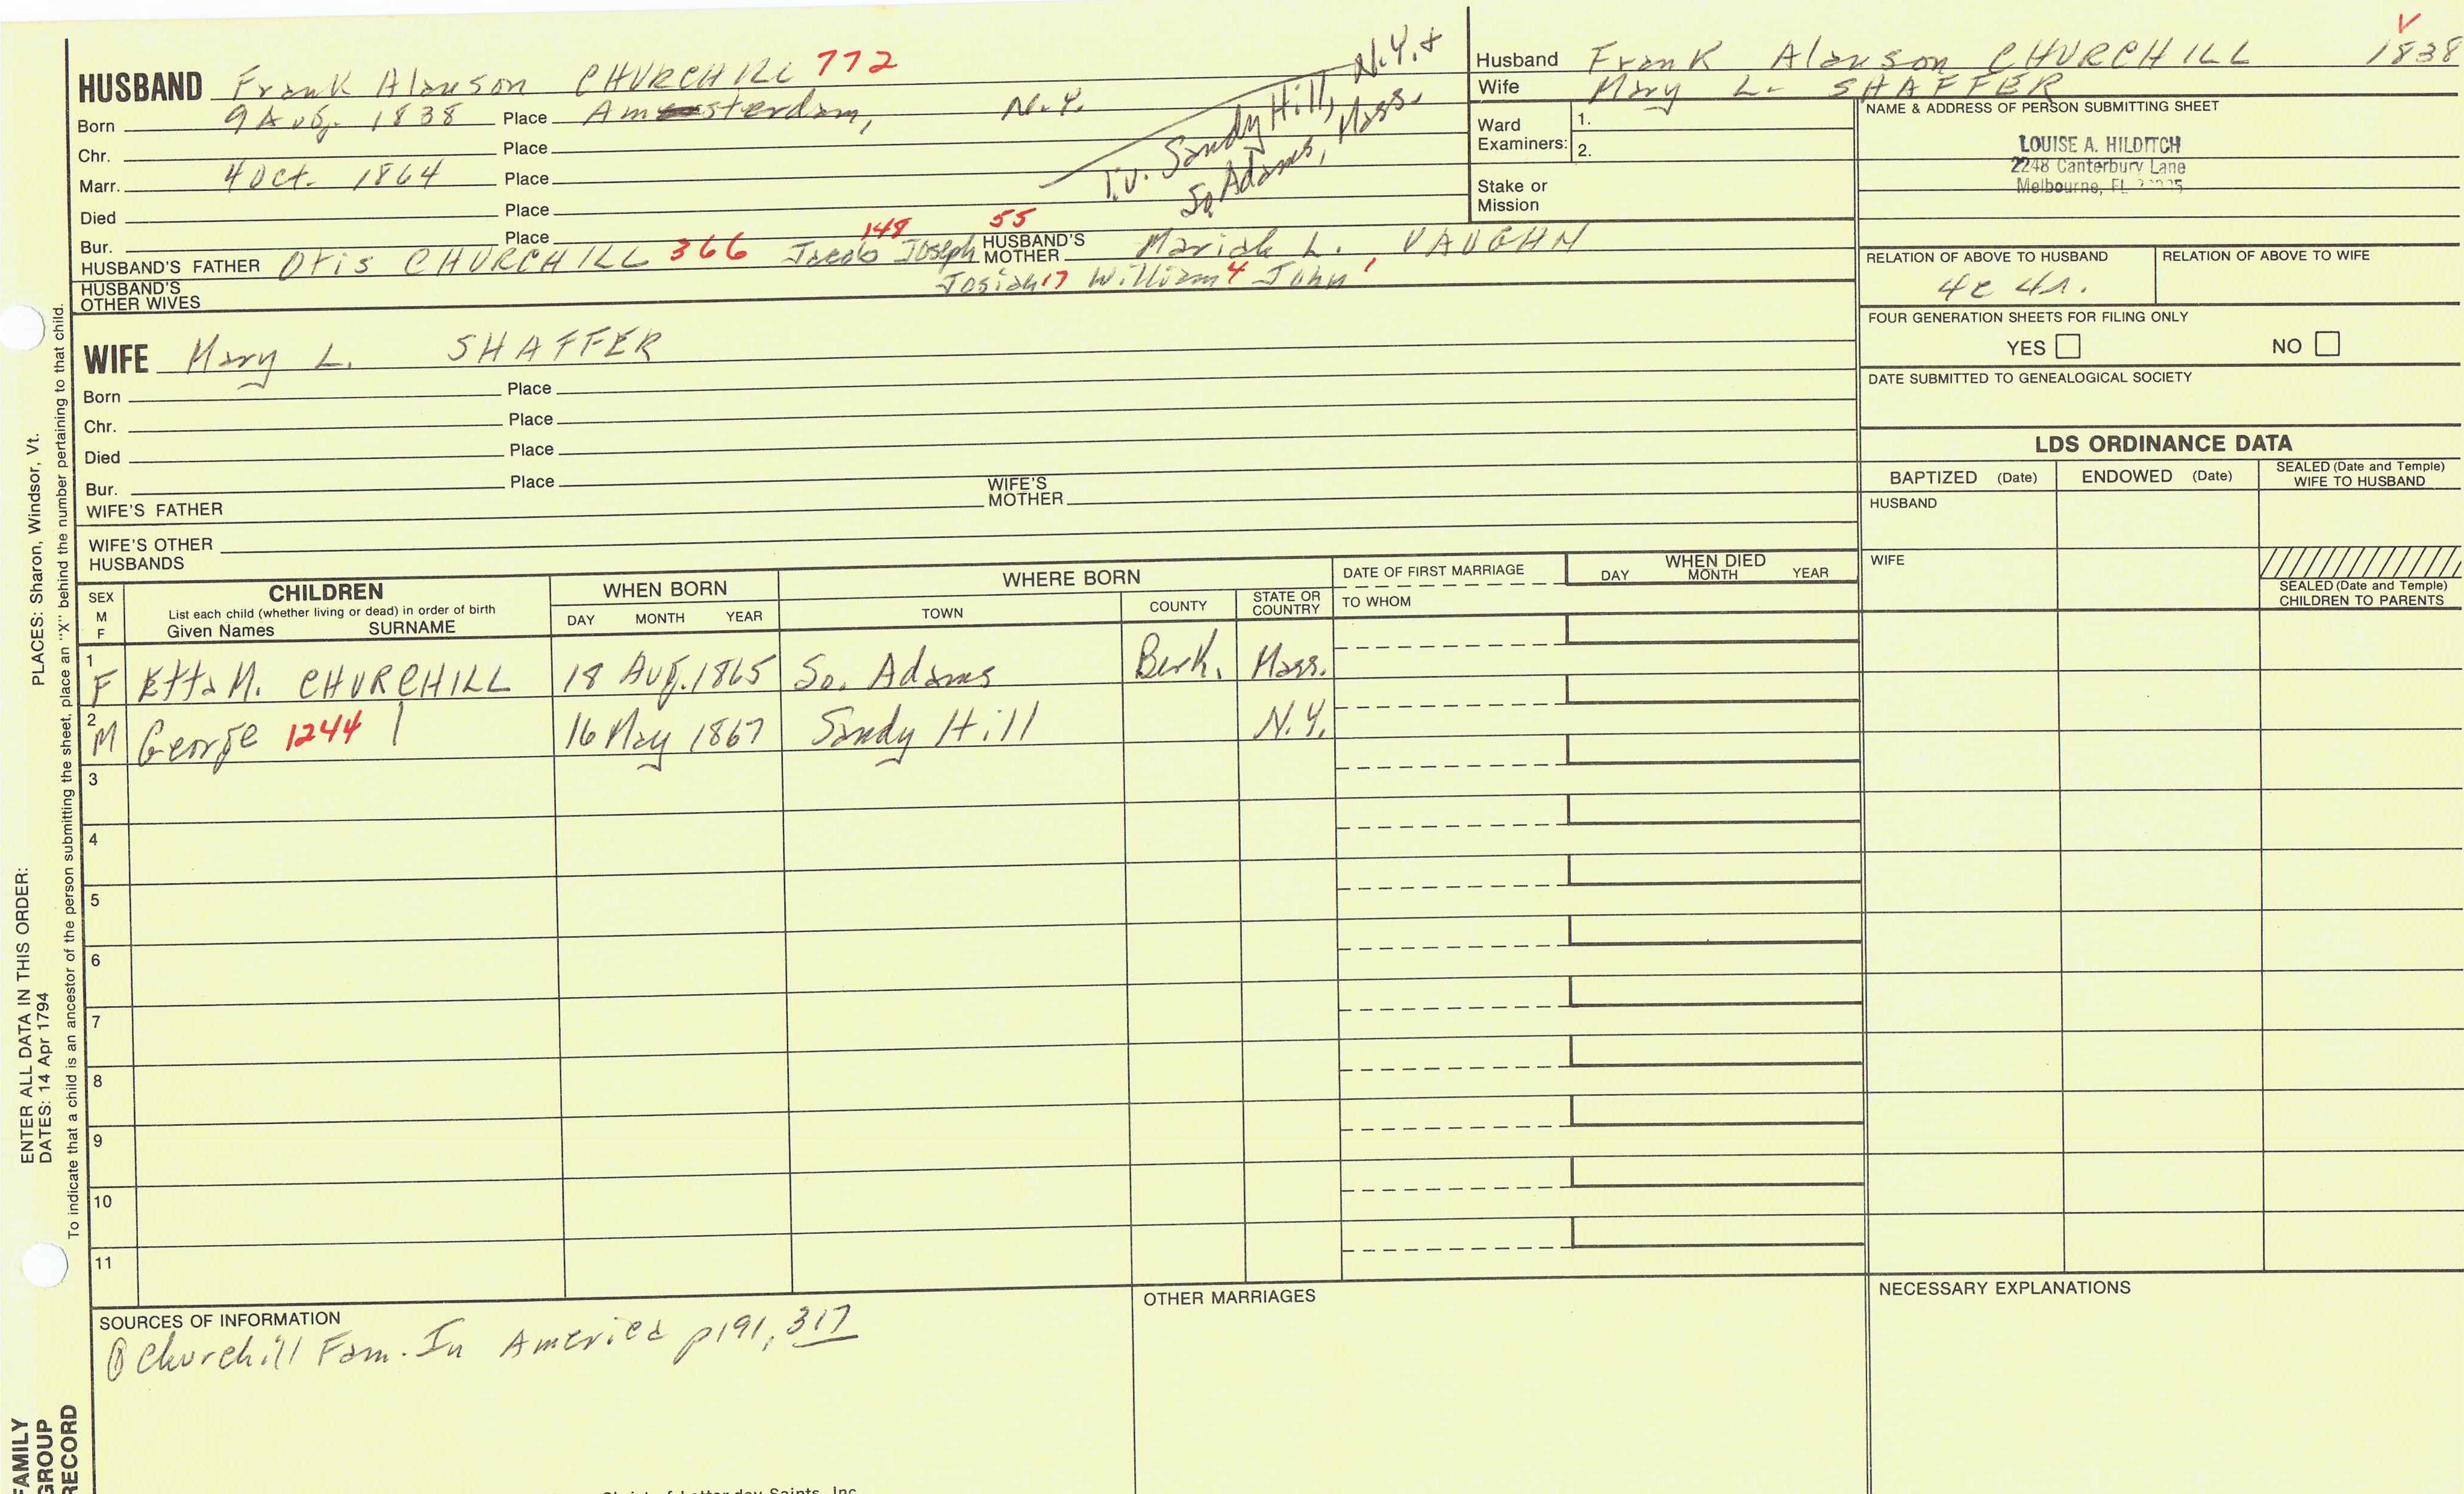 HUSBAND Frank Alanson CHURCHILL 772
Born 9 Aug. 1838 Place Amsterdam, N.Y.
Chr. Place
Marr. 4 Oct. 1864 Place
Died Place
Bur. Place
HUSBAND'S FATHER Otis CHURCHILL 366 Jacob 148 Joseph 55 HUSBAND'S MOTHER Mariah L. VAUGHN
HUSBAND'S OTHER WIVES Josiah 17 William 4 John 1
r.v. Sandy Hill, N.Y. +
So. Adams, Mass.
Husband Frank Alanson CHURCHILL 1838
Wife Mary L. SHAFFER
Ward Examiners: 1.
2.
Stake or Mission
NAME & ADDRESS OF PERSON SUBMITTING SHEET
LOUISE A. HILDITCH
2248 Canterbury Lane
Melbourne, FL
RELATION OF ABOVE TO HUSBAND RELATION OF ABOVE TO WIFE
4c 4r.
FOUR GENERATION SHEETS FOR FILING ONLY
YES NO
DATE SUBMITTED TO GENEALOGICAL SOCIETY
WIFE Mary L. SHAFFER
Born Place
Chr. Place
Died Place
Bur. Place
WIFE'S FATHER WIFE'S MOTHER
WIFE'S OTHER HUSBANDS
LDS ORDINANCE DATA
BAPTIZED (Date) ENDOWED (Date) SEALED (Date and Temple) WIFE TO HUSBAND
HUSBAND
WIFE
SEALED (Date and Temple) CHILDREN TO PARENTS
SEX M F CHILDREN List each child (whether living or dead) in order of birth Given Names SURNAME WHEN BORN DAY MONTH YEAR WHERE BORN TOWN COUNTY STATE OR COUNTRY DATE OF FIRST MARRIAGE TO WHOM WHEN DIED DAY MONTH YEAR
1 F Etta M. CHURCHILL 18 Aug. 1865 So. Adams Berk. Mass.
2 M George 1244 16 May 1867 Sandy Hill N.Y.
3
4
5
6
7
8
9
10
11
SOURCES OF INFORMATION
① Churchill Fam. In America p191, 317
OTHER MARRIAGES
NECESSARY EXPLANATIONS
ENTER ALL DATA IN THIS ORDER:
DATES: 14 Apr 1794 PLACES: Sharon, Windsor, Vt.
To indicate that a child is an ancestor of the person submitting the sheet, place an "X" behind the number pertaining to that child.
FAMILY
GROUP
RECORD